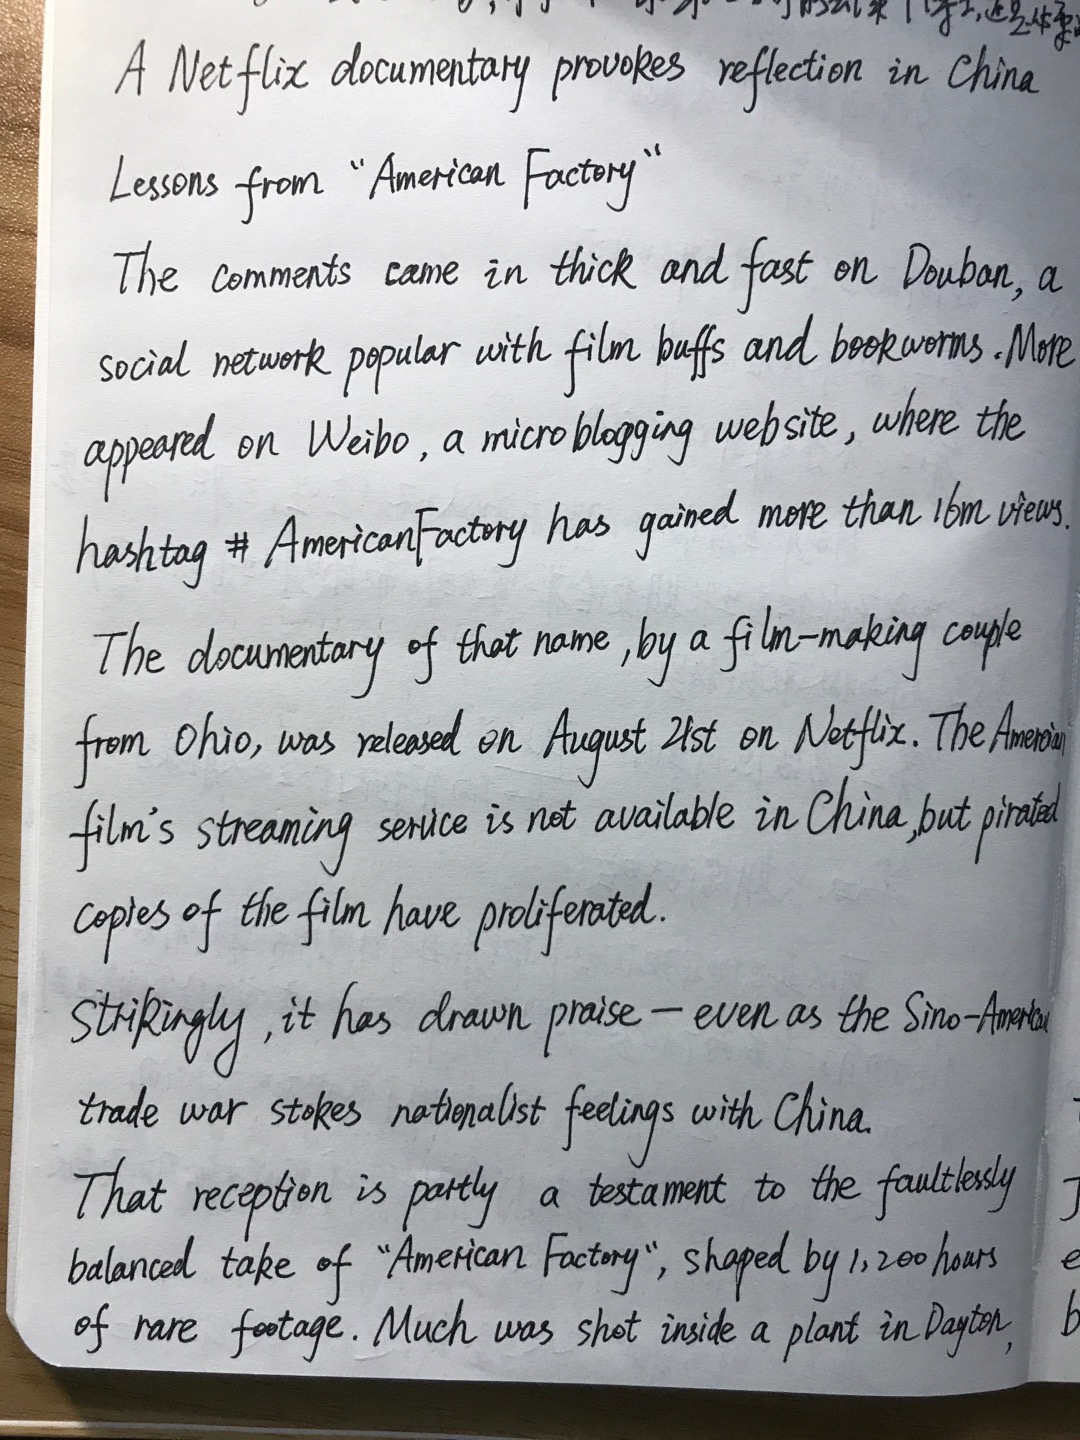 A Netflix documentary provokes reflection in China
Lessons from "American Factory"
The comments came in thick and fast on Douban, a
social network popular with film buffs and bookworms. More
appeared on Weibo, a microblogging website, where the
hashtag # AmericanFactory has gained more than 16m views.
The documentary of that name, by a film-making couple
from Ohio, was released on August 21st on Netflix. The
film's streaming service is not available in China, but pirated
copies of the film have proliferated.
Strikingly, it has drawn praise — even as the Sino-American
trade war stokes nationalist feelings with China.
That reception is partly a testament to the faultlessly
balanced take of "American Factory", shaped by 1,200 hours
of rare footage. Much was shot inside a plant in Dayton,